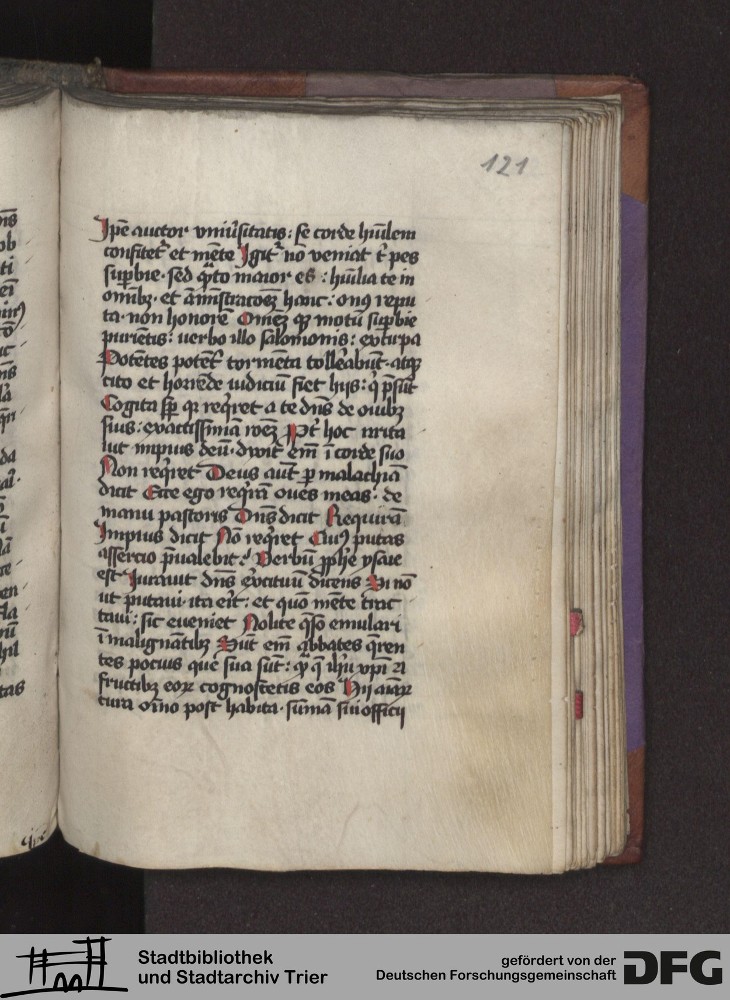 121
Ipē auctor vniūsitatis: se corde hūilem
confitet᷑ et mēte Igit᷑ nō veniat t᷑ pes
suꝑbie · sed qͣto maior es : hūilia te in
om̄ibꝫ · et ām̄istracoēꝫ hanc: on9 repu
ta · non honorē Om̄eꝫ qꝫ motū suꝑbie
verbo illo salomonis: extirpa
Potētes potēt᷑ tormēta tollerabūt · atqꝫ
cito et horrēde iudiciū fiet hijs: q̇ p̄sūt
Cogita sꝑ qꝛ reqͥret a te dn̄s de ouibꝫ
suis: exactissimā roēꝫ Ppt᷑ hoc irrita
uit impius deū · dixit em̄ ī corde suo
Non reqͥret Deus aut̄ ꝑ malachiā
dicit Ecce ego reqͥrā oues meas · de
manu pastoris Dn̄s dicit Requirā
Impius dicit Nō reqͥret Cui9 putas
assercio p̄ualebit? Verbū ꝓphē ysaie
est Iurauit dn̄s exͤcituū dicens Si nō
ut putaui · ita eͥt: et quō mēte trac
taui: sic eueniet Nolite qͣso emulari
ī malignātibꝫ Sūt em̄ abbates q̄ren
tes pocius que sua sūt: qͣꝫ q̄ ihū xp̄i A
fructibꝫ eoꝝ cognoscetis eos Hij aīaꝝ
cura oīno post habita · sūmā sui officij
Stadtbibliothek
und Stadtarchiv Trier
gefördert von der
Deutschen Forschungsgemeinschaft
DFG